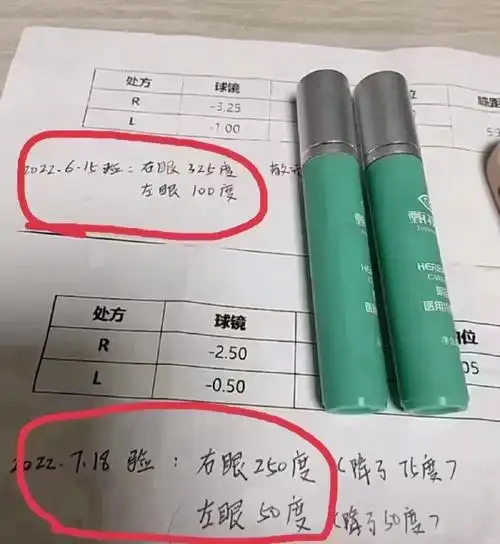 处方 球镜 位 瞳距
R -3.25
L -1.00 53
2022.6.15验：右眼 325度 散
左眼 100度
处方 球镜 位
R -2.50 05
L -0.50
2022.7.18 验：右眼250度（降了75度）
左眼 50度（降了50度）
甄
HERB
CARE
医用